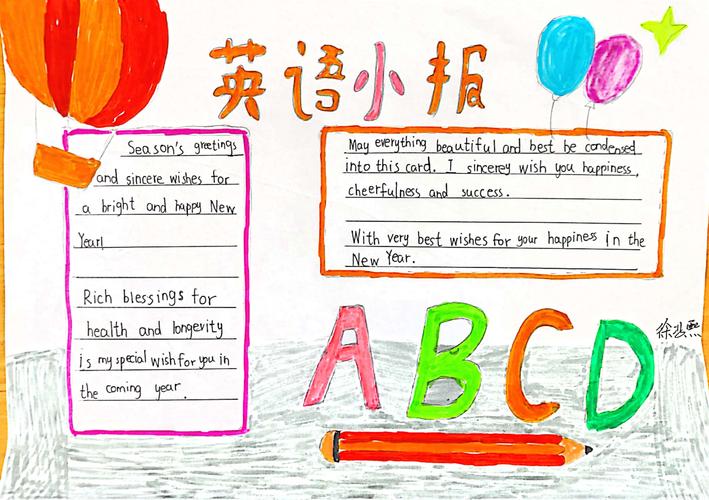 英语小报
Season's greetings
and sincere wishes for
a bright and happy New
Year!
Rich blessings for
health and longevity
is my special wish for you in
the coming year.
May everything beautiful and best be condensed
into this card. I sincerey wish you happiness,
cheerfulness and success.
With very best wishes for your happiness in the
New Year.
ABCD
徐